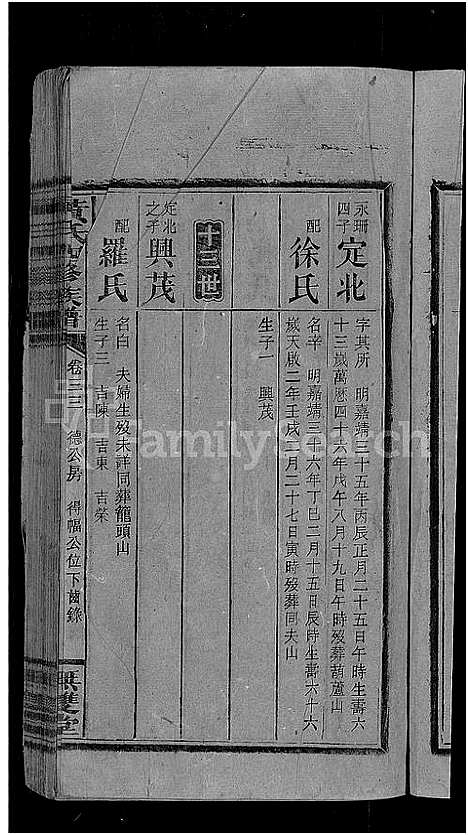 永珊四子 定北 字其所 明嘉靖三十五年丙辰正月二十五日午時生壽六
十三歲萬曆四十六年戊午八月十九日午時歿葬葫蘆山
配 徐氏 名辛 明嘉靖三十六年丁巳二月十五日辰時生壽六十六
歲天啟二年壬戌 月二十七日寅時歿葬同夫山
生子一 興茂
十三世
定北之子 興茂
配 羅氏 名白 夫婦生歿未詳同葬龍頭山
生子三 吉陳 吉東 吉榮
黃氏 修族譜 卷三三 德公房 得幅公位下齒錄 無雙堂
FamilySearch